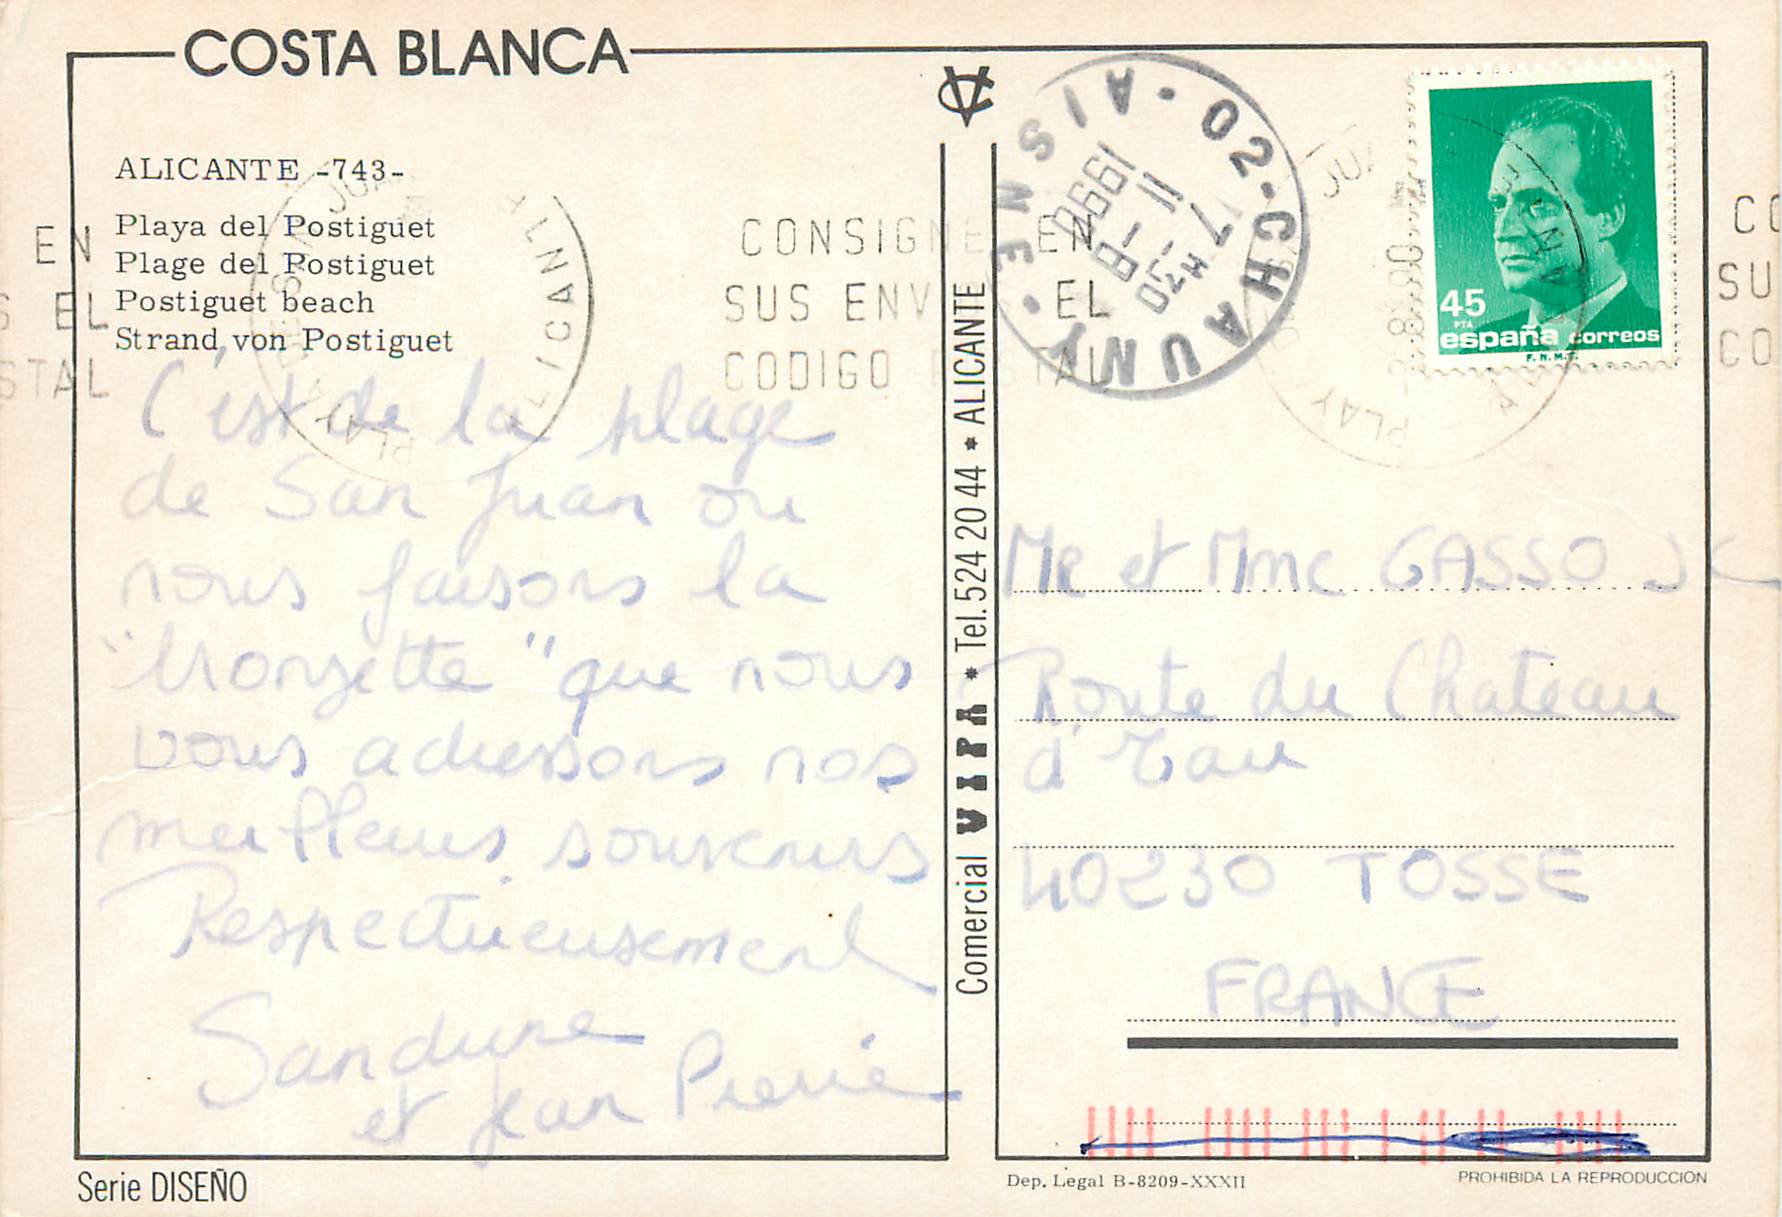 COSTA BLANCA
ALICANTE -743-
Playa del Postiguet
Plage del Postiguet
Postiguet beach
Strand von Postiguet
C'est de la plage
de San Juan ou
nous faisons la
"bronzette" que nous
vous adressons nos
meilleurs souvenirs
Respectueusement
Sandrine
et Jean Pierre
Serie DISEÑO
CONSIGNE EN
SUS ENV EL
CODIGO POSTAL
EN
S EL
STAL
Comercial VIPA * Tel. 524 20 44 * ALICANTE
02 - CHAUNY • AISNE •
17 H30
11 - 8
1990
45
PTA
españa correos
F.N.M.T.
CO
SU
CO
Mr et Mme GASSO JC
Route du Chateau
d'Eau
40230 TOSSE
FRANCE
Dep. Legal B-8209-XXXII
PROHIBIDA LA REPRODUCCION